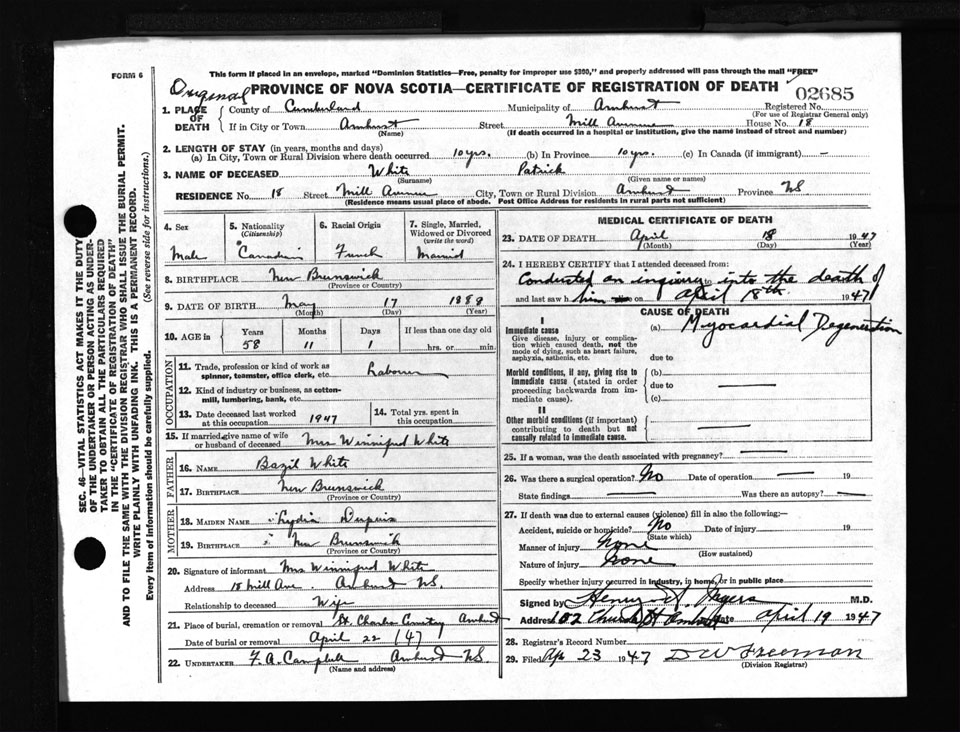 FORM 6
This form if placed in an envelope, marked "Dominion Statistics—Free, penalty for improper use $300," and properly addressed will pass through the mail "FREE"
Original
PROVINCE OF NOVA SCOTIA—CERTIFICATE OF REGISTRATION OF DEATH
02685
1. PLACE OF DEATH
County of Cumberland Municipality of Amherst Registered No.
(For use of Registrar General only)
If in City or Town Amherst Street Mill Avenue House No. 18
(Name) (If death occurred in a hospital or institution, give the name instead of street and number)
2. LENGTH OF STAY (in years, months and days)
(a) In City, Town or Rural Division where death occurred 10 yrs. (b) In Province 10 yrs. (c) In Canada (if immigrant) —
3. NAME OF DECEASED White Patrick
(Surname) (Given name or names)
RESIDENCE No. 18 Street Mill Avenue City, Town or Rural Division Amherst Province NS
(Residence means usual place of abode. Post Office Address for residents in rural parts not sufficient)
4. Sex 5. Nationality (Citizenship) 6. Racial Origin 7. Single, Married, Widowed or Divorced (write the word)
Male Canadian French Married
8. BIRTHPLACE New Brunswick
(Province or Country)
9. DATE OF BIRTH May 17 1888
(Month) (Day) (Year)
10. AGE in Years Months Days If less than one day old
58 11 1 hrs. or min.
OCCUPATION
11. Trade, profession or kind of work as spinner, teamster, office clerk, etc. Labourer
12. Kind of industry or business, as cotton-mill, lumbering, bank, etc.
13. Date deceased last worked at this occupation 1947 14. Total yrs. spent in this occupation
15. If married, give name of wife or husband of deceased Mrs Winnifred White
FATHER
16. NAME Bazil White
17. BIRTHPLACE New Brunswick
(Province or Country)
MOTHER
18. MAIDEN NAME Lydia Dupuis
19. BIRTHPLACE New Brunswick
(Province or Country)
20. Signature of informant Mrs Winnifred White
Address 18 Mill Ave. Amherst NS.
Relationship to deceased Wife
21. Place of burial, cremation or removal St. Charles Cemetery Amherst
Date of burial or removal April 22 /47
22. UNDERTAKER F. A. Campbell Amherst NS.
(Name and address)
MEDICAL CERTIFICATE OF DEATH
23. DATE OF DEATH April 18 1947
(Month) (Day) (Year)
24. I HEREBY CERTIFY that I attended deceased from:
Conducted an inquiry to into the death of
and last saw h him on April 18th. 1947
CAUSE OF DEATH
I
Immediate cause
Give disease, injury or complication which caused death, not the mode of dying, such as heart failure, asphyxia, asthenia, etc.
(a) Myocardial Degeneration
due to
Morbid conditions, if any, giving rise to immediate cause (stated in order proceeding backwards from immediate cause).
(b)
due to —
(c)
II
Other morbid conditions (if important) contributing to death but not causally related to immediate cause.
—
25. If a woman, was the death associated with pregnancy? —
26. Was there a surgical operation? No Date of operation — 19
State findings — Was there an autopsy? —
27. If death was due to external causes (violence) fill in also the following:—
Accident, suicide or homicide? No Date of injury 19
(State which)
Manner of injury None
(How sustained)
Nature of injury None
Specify whether injury occurred in industry, in home, or in public place
Signed by Henry M.D.
Address 102 Church St Amherst Date April 19 1947
28. Registrar's Record Number
29. Filed Ap 23 1947 D W Freeman
(Division Registrar)
SEC. 46—VITAL STATISTICS ACT MAKES IT THE DUTY
OF THE UNDERTAKER OR PERSON ACTING AS UNDER-
TAKER TO OBTAIN ALL THE PARTICULARS REQUIRED
IN THE "CERTIFICATE OF REGISTRATION OF DEATH"
AND TO FILE THE SAME WITH THE DIVISION REGISTRAR WHO SHALL ISSUE THE BURIAL PERMIT.
WRITE PLAINLY WITH UNFADING INK. THIS IS A PERMANENT RECORD.
Every item of information should be carefully supplied. (See reverse side for instructions.)